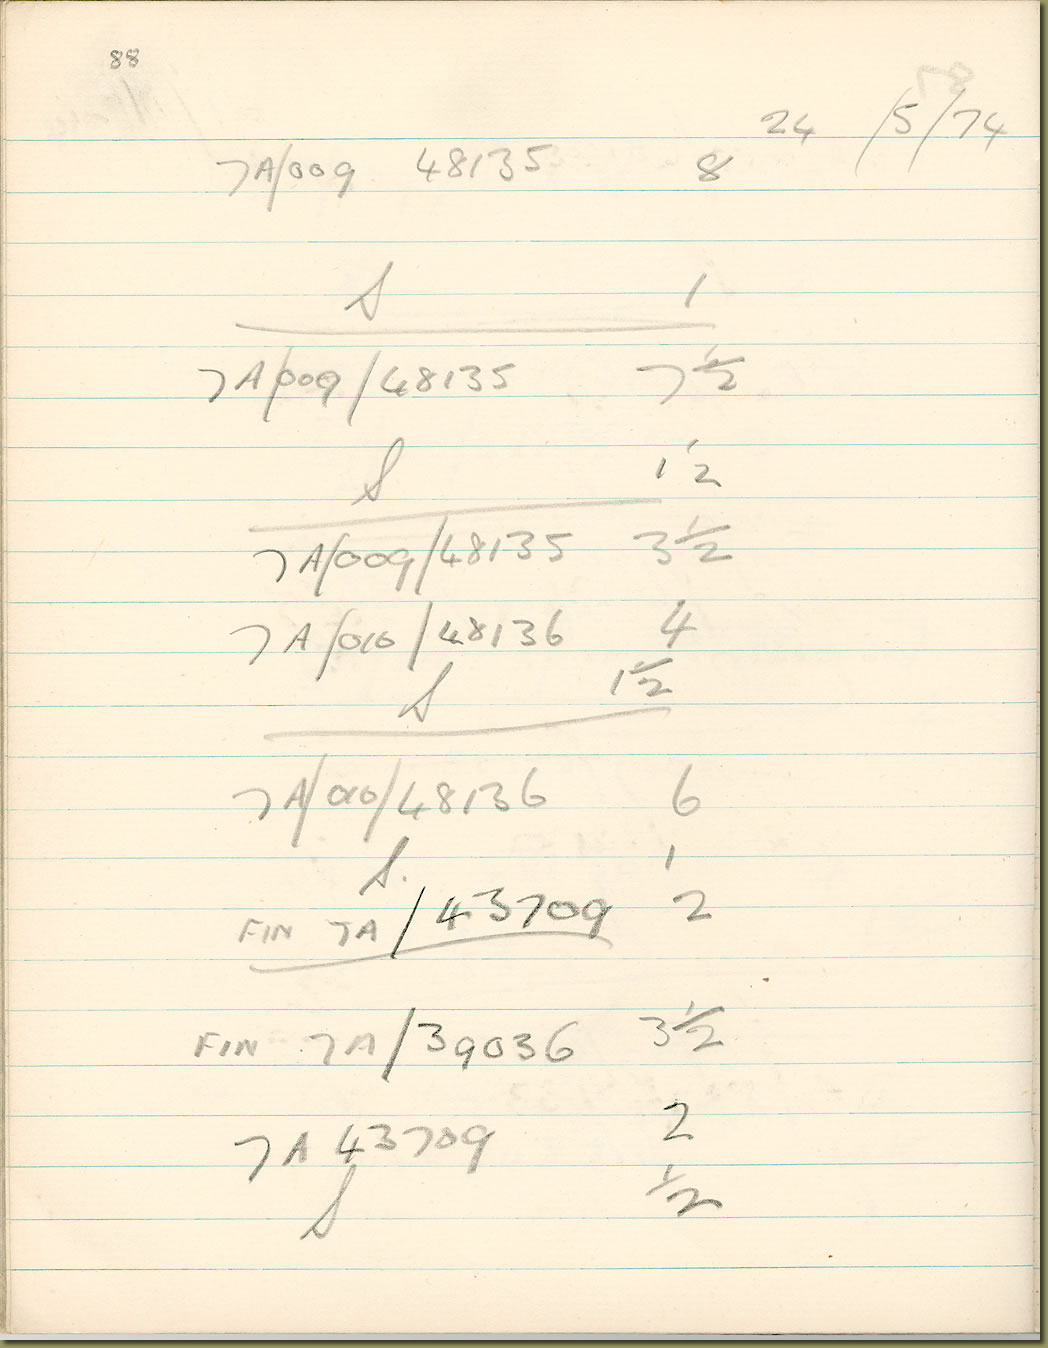 88
24 /5/74
7A/009 48135 8
S 1
7A/009/48135 7 1/2
S 1 1/2
7A/009/48135 3 1/2
7A/010/48136 4
S 1 1/2
7A/010/48136 6
S. 1
FIN 7A/43709 2
FIN 7A/39036 3 1/2
7A 43709 2
S 1/2